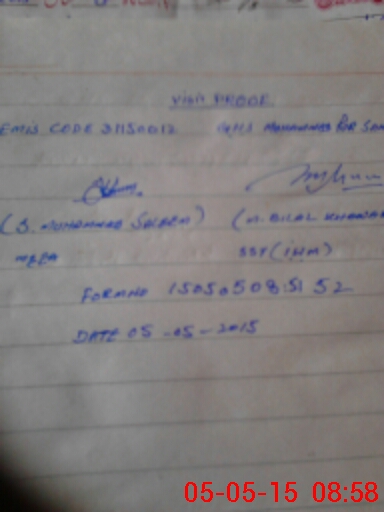 VISIT PROOF
EMIS CODE 31150012 GHS MOHAMMAD PUR SAN
(S. MUHAMMAD SALEEM) (M. BILAL KHAWAR
MEEA SST (IHM)
FORM NO 150505085152
DATE 05-05-2015
05-05-15 08:58